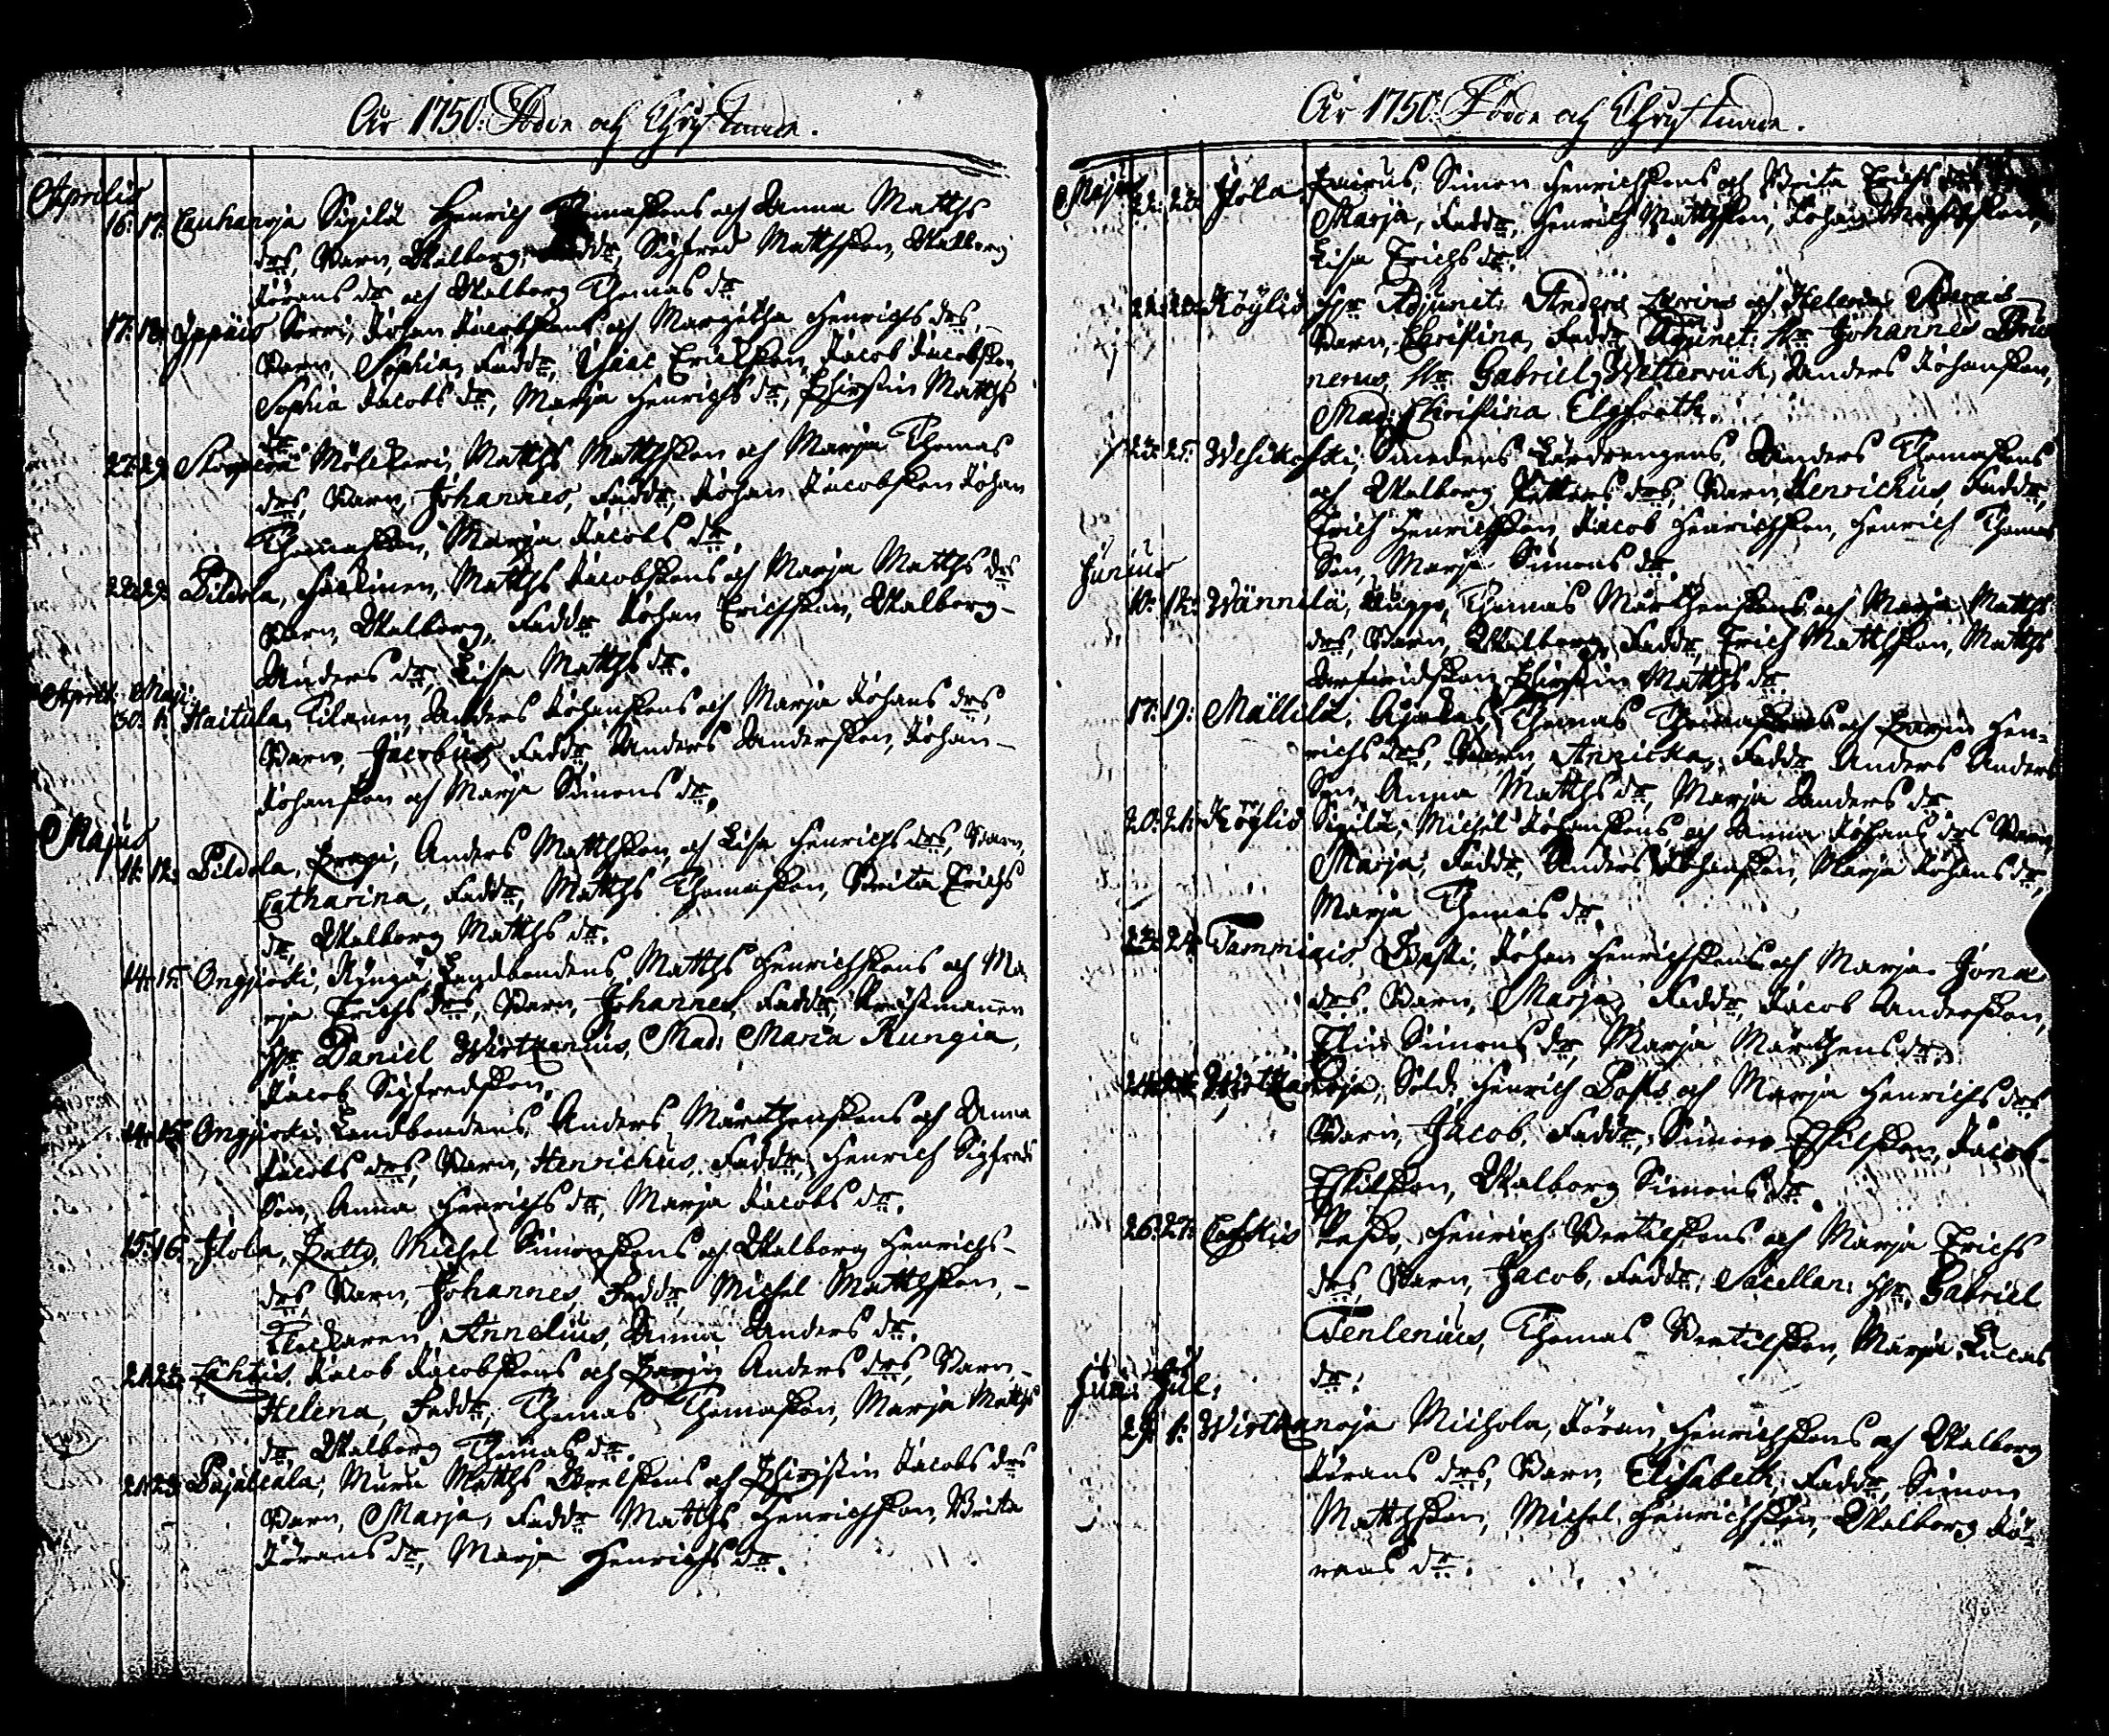 År 1750: Födde och Christnade.
Aprilis
16: 17: Cauhanoja Sipilä Henrich Thomassons och Anna Matths
drs, Barn, Walborg, Fadd:r, Sigfred Mattsson, Walborg
Jörans dr och Walborg Thomas dr
17: 18: Yppäis Sorri, Johan Jacobssons och Margetha Henrichs drs,
Barn, Sophia, Fadd:r, Isaac Erichsson, Jacob Jacobsson,
Sophia Jacobs dr, Marja Henrichs dr, Christin Matths
dr
27: 29: Mölckäri, Matths Matthsson och Marja Thomas
drs, Barn, Johannes, Fadd:r, Johan Jacobsson Johan
Thomasson, Marja Jacobs dr.
29: Pildola, Matths Jacobssons och Marja Matths drs
Barn, Walborg, Fadd:r Johan Erichsson, Walborg
Anders dr, Lisa Matths dr.
April: Maji:
30: 1: Haitula, Tilanen, Anders Johanssons och Marja Johans drs,
Barn, Jacobus, Fadd:r Anders Andersson, Johan
Johansson och Marja Simons dr.
Majus
11: 12: Pildola, Anders Matthsson, och Lisa Henrichs drs, Barn,
Catharina, Fadd:r, Matths Thomasson, Brita Erichs
dr, Walborg Matths dr.
14: 15: Ongijocki, Landbondens Matths Henrichssons och Ma
rja Erichs drs, Barn, Johannes, Fadd:r,
Hr Daniel Wirtzenius, Mad: Maria Rungia,
Jacob Sigfredsson,
14: 15: Ongijocki, Landbondens, Anders Mårthenssons och Anna
Jacobs drs, Barn, Henrichus, Fadd:r, Henrich Sigfreds
Son, Anna Henrichs dr, Marja Jacobs dr.
15: 16: Ilola, Michel Simonssons och Walborg Henrichs
drs, Barn, Johannes, Fadd:r, Michel Matthsson,
Klockaren Annelius, Anna Anders dr.
21: 23: Lähtis, Jacob Jacobssons och Karin Anders drs, Barn,
Helena, Fadd:r, Thomas Thomasson, Marja Matths
dr, Walborg Thomas dr.
21: 23: Pajuleula, Muru Matths Axelssons och Christin Jacobs drs
Barn, Marja, Fadd:r Matths Henrichsson, Brita
Jörans dr, Marja Henrichs dr.
År 1750: Födde och Christnade.
Majus
22: 23: Ilola, Simon Henrichssons och Brita Erichs drs
Marja, Fadd:r, Henrich Matthsson, Johan
Lisa Erichs dr.
Köyliö Hr Adjunct: Anders Lœrinus och Helena
Barn, Christina, Fadd:r Adjunct: Hr Johannes
nerus, Hr Gabriel Wetterwik, Anders Johansson,
Mad: Christina Elgfooth.
23: 25: Wesikoski, Smedens Anders Thomassons
och Walborg Petters drs, Barn, Henrichus, Fadd:r,
Erich Henrichsson, Jacob Henrichsson, Henrich Thomas
Son, Marja Simons dr.
Junius
10: 12: Wännilä, Thomas Mårthenssons och Marja Matths
drs, Barn, Walborg, Fadd:r, Erich Matthsson, Matths
Christin Matths dr.
17: 19: Mällilä, Thomas Thomassons och Karin Hen=
richs drs, Barn Annicka, Fadd:r Anders Anders
Son, Anna Matths dr, Marja Anders dr
20: 21: Köyliö Sipilä, Michel Johanssons och Anna Johans drs Barn,
Marja, Fadd:r, Anders Johansson, Marja Johans dr,
Marja Thomas dr.
23: 24: Tammiais Johan Henrichssons och Marja Jona
drs. Barn, Marja, Fadd:r, Jacob Andersson,
Elin Simons dr, Marja Mårthens dr.
Wirtzanoja, Sold: Henrich och Marja Henrichs drs
Barn, Jacob, Fadd:r, Simon Eskilsson, Jacob
Eskilsson, Walborg Simons dr.
26: 27: Henrich Bertilssons och Marja Erichs
drs, Barn, Jacob, Fadd:r, Sacellan: Hr. Gabriel
Tenlenius, Thomas Bertilsson, Marja Lucas
dr.
Jun: Jul:
29: 1: Wirtzanoja Michola, Jöran Henrichssons och Walborg
Jörans drs, Barn, Elisabeth, Fadd:r, Simon
Matthsson, Michel Henrichsson, Walborg Jö=
rans dr.